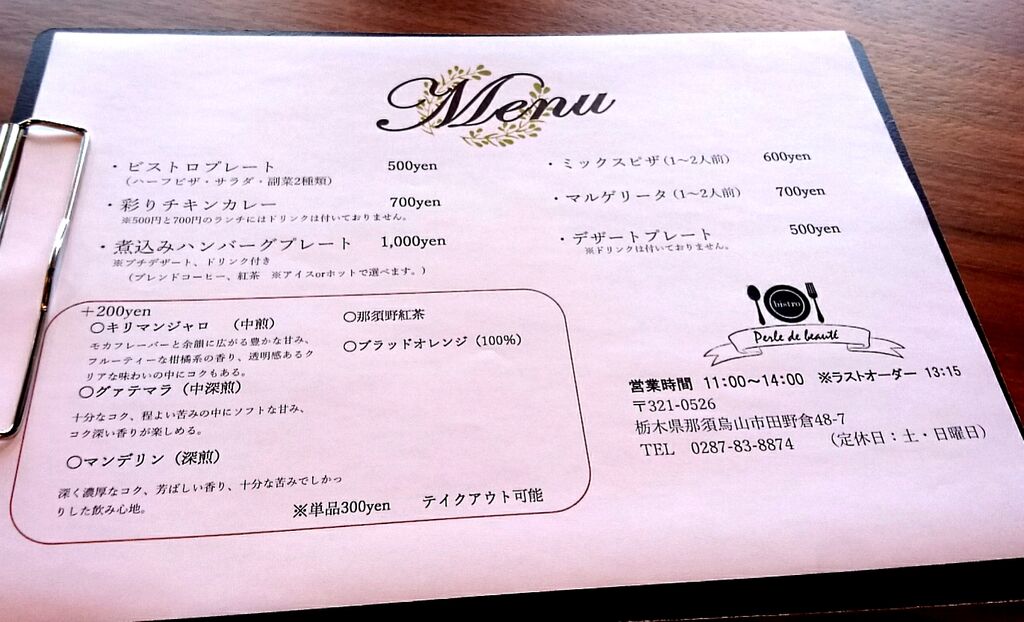 Menu
・ビストロプレート 500yen
（ハーフピザ・サラダ・副菜2種類）
・彩りチキンカレー 700yen
※500円と700円のランチにはドリンクは付いておりません。
・煮込みハンバーグプレート 1,000yen
※プチデザート、ドリンク付き
（ブレンドコーヒー、紅茶 ※アイスorホットで選べます。）
・ミックスピザ（1～2人前） 600yen
・マルゲリータ（1～2人前） 700yen
・デザートプレート 500yen
※ドリンクは付いておりません。
＋200yen
〇キリマンジャロ （中煎）
モカフレーバーと余韻に広がる豊かな甘み、
フルーティーな柑橘系の香り、透明感あるク
リアな味わいの中にコクもある。
〇グァテマラ（中深煎）
十分なコク、程よい苦みの中にソフトな甘み、
コク深い香りが楽しめる。
〇マンデリン（深煎）
深く濃厚なコク、芳ばしい香り、十分な苦みでしかっ
りした飲み心地。
〇那須野紅茶
〇ブラッドオレンジ（100%）
※単品300yen テイクアウト可能
bistro
Perle de beauté
営業時間 11:00～14:00 ※ラストオーダー 13:15
〒321-0526
栃木県那須烏山市田野倉48-7
TEL 0287-83-8874 （定休日：土・日曜日）